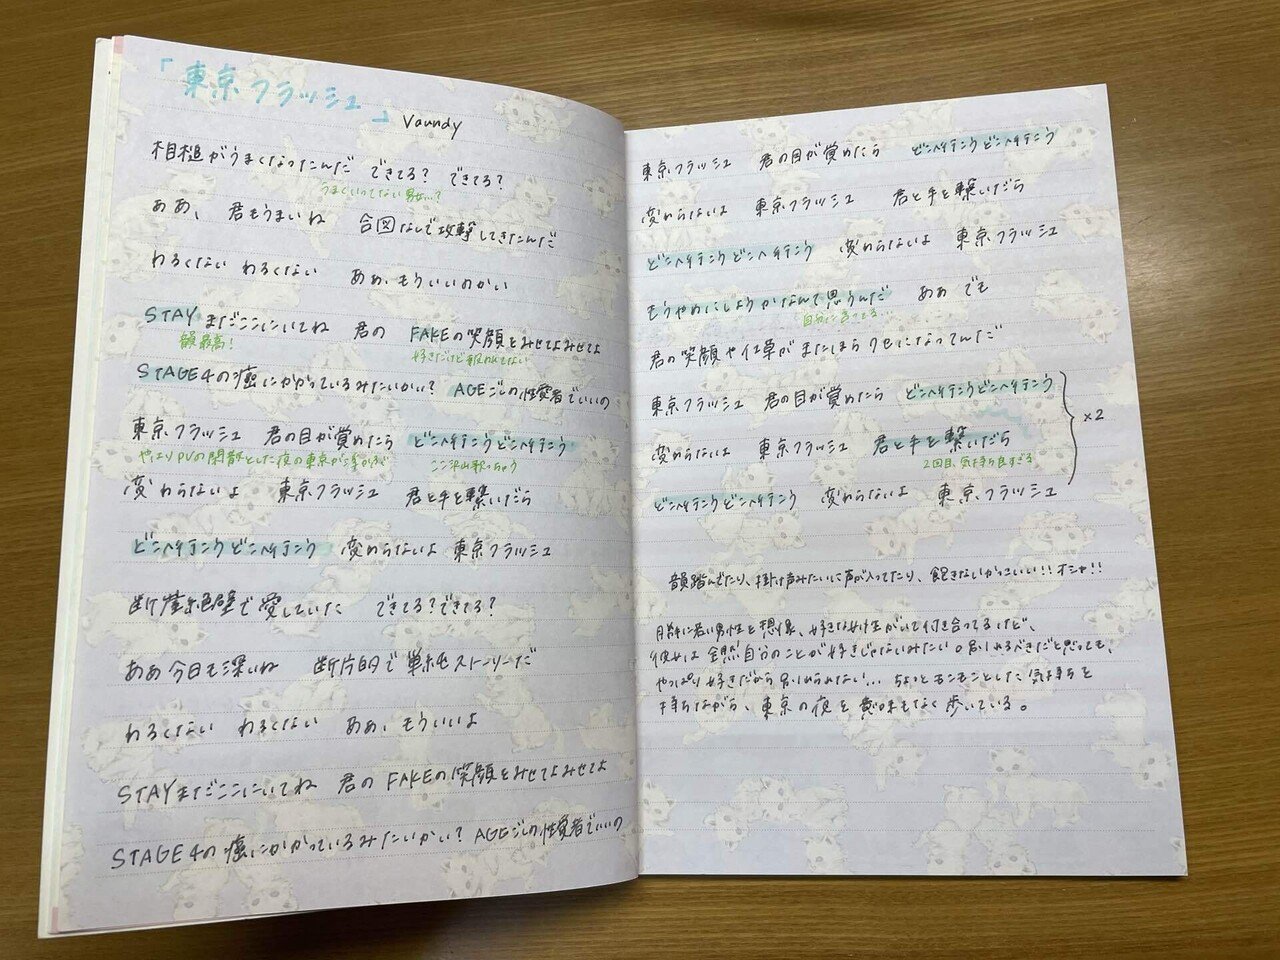 「東京フラッシュ」 Vaundy
相槌がうまくなったんだ できてる? できてる?
うまくいってない男女…?
ああ、 君もうまいね 合図なしで攻撃してきたんだ
わるくない わるくない ああ、もういいのかい
STAY まだここにいてね 君の FAKEの笑顔をみせてよみせてよ
韻最高! 好きだけど報われてない
STAGE4の癌にかかっているみたいかい? AGEごしの性愛者でいいの
東京フラッシュ 君の目が覚めたら どこへ行こうどこへ行こう
やはりPVの閑散とした夜の東京が浮かぶ ここ沢山歌っちゃう
変わらないよ 東京フラッシュ 君と手を繋いだら
どこへ行こうどこへ行こう 変わらないよ 東京フラッシュ
断崖絶壁で愛していた できてる?できてる?
ああ今日も深いね 断片的で単純ストーリーだ
わるくない わるくない ああ、もういいよ
STAYまだここにいてね 君の FAKEの笑顔をみせてよみせてよ
STAGE4の癌にかかっているみたいかい? AGEごしの性愛者でいいの
東京フラッシュ 君の目が覚めたら どこへ行こうどこへ行こう
変わらないよ 東京フラッシュ 君と手を繋いだら
どこへ行こうどこへ行こう 変わらないよ 東京フラッシュ
もうやめにしようかなんて思うんだ ああ でも
自分に言ってる…
君の笑顔や仕草がまたほらクセになってんだ
東京フラッシュ 君の目が覚めたら どこへ行こうどこへ行こう
変わらないよ 東京フラッシュ 君と手を繋いだら ×2
2回目、気持ち良すぎる
どこへ行こうどこへ行こう 変わらないよ 東京フラッシュ
韻踏んでたり、掛け声みたいに声が入ってたり、飽きないかっこいい!!オシャ!!
月並に若い男性を想像、好きな女性がいて付き合ってるけど、
彼女は全然自分のことが好きじゃないみたい。諦めるべきだと思っても、
やっぱり好きだから諦められない!… ちょっとモンモンとした気持ちを
持ちながら、東京の夜を意味もなく歩いている。